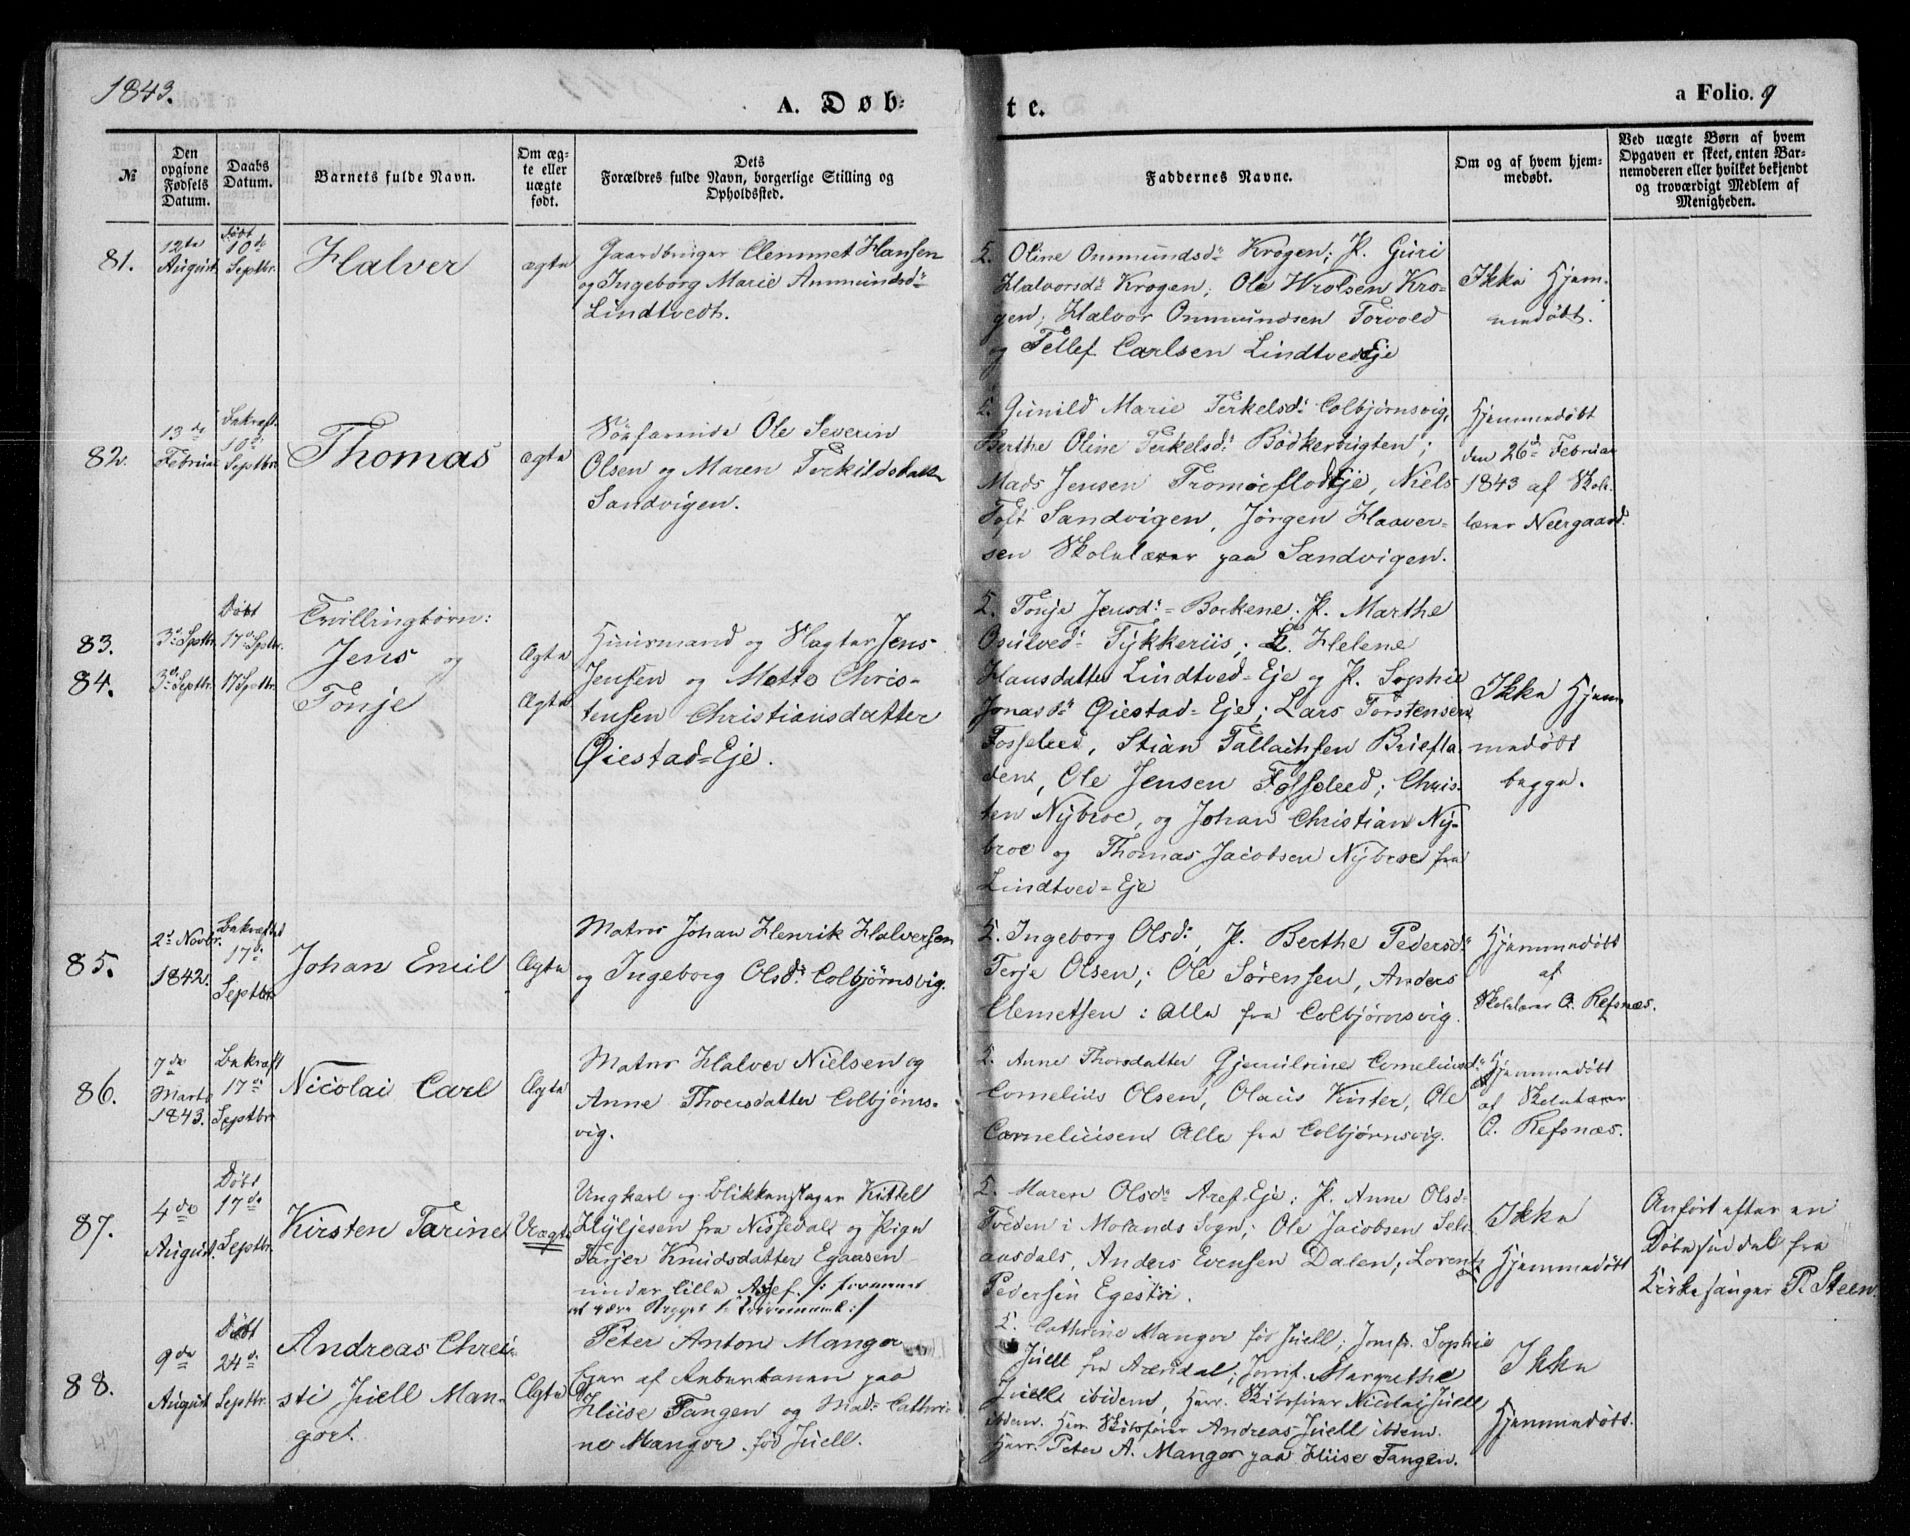 1843.
A. Døb-
te.
a Folio. 9
№
Den opgivne Fødsels Datum.
Daabs Datum.
Barnets fulde Navn.
Om ægte eller uægte født.
Dets Forældres fulde Navn, borgerlige Stilling og Opholdssted.
Faddernes Navne.
Om og af hvem hjemmedøbt.
Ved uægte Børn af hvem Opgaven er skeet, enten Barnemoderen eller hvilket bekjendt og troværdigt Medlem af Menigheden.
81.
12te August
Døbt 10de Septbr.
Halver
ægte
Gaardbruger Clemmet Hansen
og Ingeborg Marie Anmundsd.
Lindtvedt.
Oline Onmundsd. Krogen; P. Guri
Halvorsd. Krogen; Ole Wrolsen Kro-
gen; Halvor Onmundsen Torvold
og Tellef Carlsen Lindtved Eje
Ikke Hjem-
medøbt.
82.
13de Februar
Bekræft. 10de Septbr.
Thomas
ægte
Søefarende Ole Severin
Olsen og Maren Terkildsdatter
Sandvigen.
Gunild Marie Terkelsd. Colbjørnsvig,
Berthe Oline Terkelsd. Bödkerbugten;
Mads Jensen Tromöeflod Eje, Niels
Toft Sandvigen, Jörgen Haaver-
sen Skolelærer paa Sandvigen.
Hjemmedøbt
den 26d Februar
1843 af Skole-
lærer Neergaard.
83.
84.
3d. Septbr.
3d. Septbr.
Døbt
17d. Septbr.
17 Septbr.
Tvillingbørn:
Jens og
Tonje
Ægte
Ægte
Huusmand og Slagter Jens
Jensen og Mette Chris-
tensen Christiansdatter
Øiestad-Eje.
Tonje Jensd. Bockene; P. Marthe
Osulvd. Tykkeriis; Helene
Hansdatter Lindtved-Eje og P. Sophie
Jonasd. Øiestad-Eje; Lars Torstensen
Fosseleed, Stian Tallachsen Briefla
dene, Ole Jensen Fosseleed; Chris-
ten Nybroe, og Johan Christian Ny-
broe og Thomas Jacobsen Nybroe fra
Lindtved-Eje
Ikke Hjem
medøbt
begge.
85.
2d Novbr.
1842.
Bekræftet
17de
Septbr.
Johan Emil
Ægte
Matros Johan Henrik Halversen
og Ingeborg Olsd. Colbjørnsvig.
Ingeborg Olsd., P. Berthe Pedersd.
Terje Olsen; Ole Sörensen, Anders
Clemetsen: Alle fra Colbjørnsvig.
Hjemmedøbt
af
Skolelærer O. Refsnæs.
86.
7de
Marts
1843.
Bekræft
17de
Septbr.
Nicolai Carl
Ægte
Matros Halver Nielsen og
Anne Thorsdatter Colbjørns-
vig.
Anne Thorsdatter Corneliusd.
Cornelius Olsen, Olaus Ole
Corneliusen Alle fra Colbjørnsvig.
Hjemmedøbt
af Skolelærer
O. Refsnæs.
87.
4de
August.
Døbt
17de
Septbr.
Kirsten Tarine
Uægte
Ungkarl og Blikkenslager Kittel
Hyljesen fra Nissedal og Pige
Tarjer Knudsdatter Egaasen
under lille Asef.
Maren Olsd. Aref-Eje; P. Anne Olsd.
Tveden i Molands Sogn; Ole Jacobsen Sels
aasdals, Anders Evensen Dalen; Lorents
Pedersen Egestöe.
Ikke
Hjemmedøbt
Anført efter en
Døbeseddel fra
Kirkesanger P. Steen.
88.
9de
August
Døbt
24de
Septbr.
Andreas Chri-
sti Juell Man-
gor.
Ægte
Peter Anton Mangor
Eier af paa
Hiise Tangen og Mad. Cathri-
ne Mangor, fød Juell.
Cathrine Mangor fød Juell; Jomf. Sophie
Juell fra Arendal; Jomf. Margrethe
Juell ibidem, Herr Skibsfører Nicolai Juell
ibidem. Herr Skibsfører Andreas Juell ibidem.
Herr Peter A. Mangor paa Hiise Tangen.
Ikke
Hjemmedøbt.